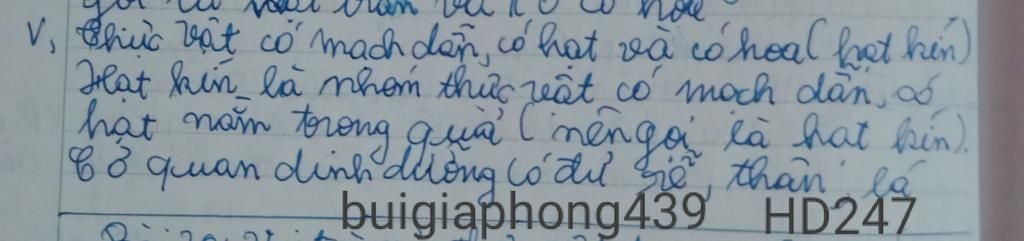 V, Thực vật có mạch dẫn, có hạt và có hoa (hạt kín)
Hạt kín là nhóm thực vật có mạch dẫn, có
hạt nằm trong quả (nên gọi là hạt kín).
Cơ quan dinh dưỡng có đủ rễ, thân, lá
buigiaphong439 HD247